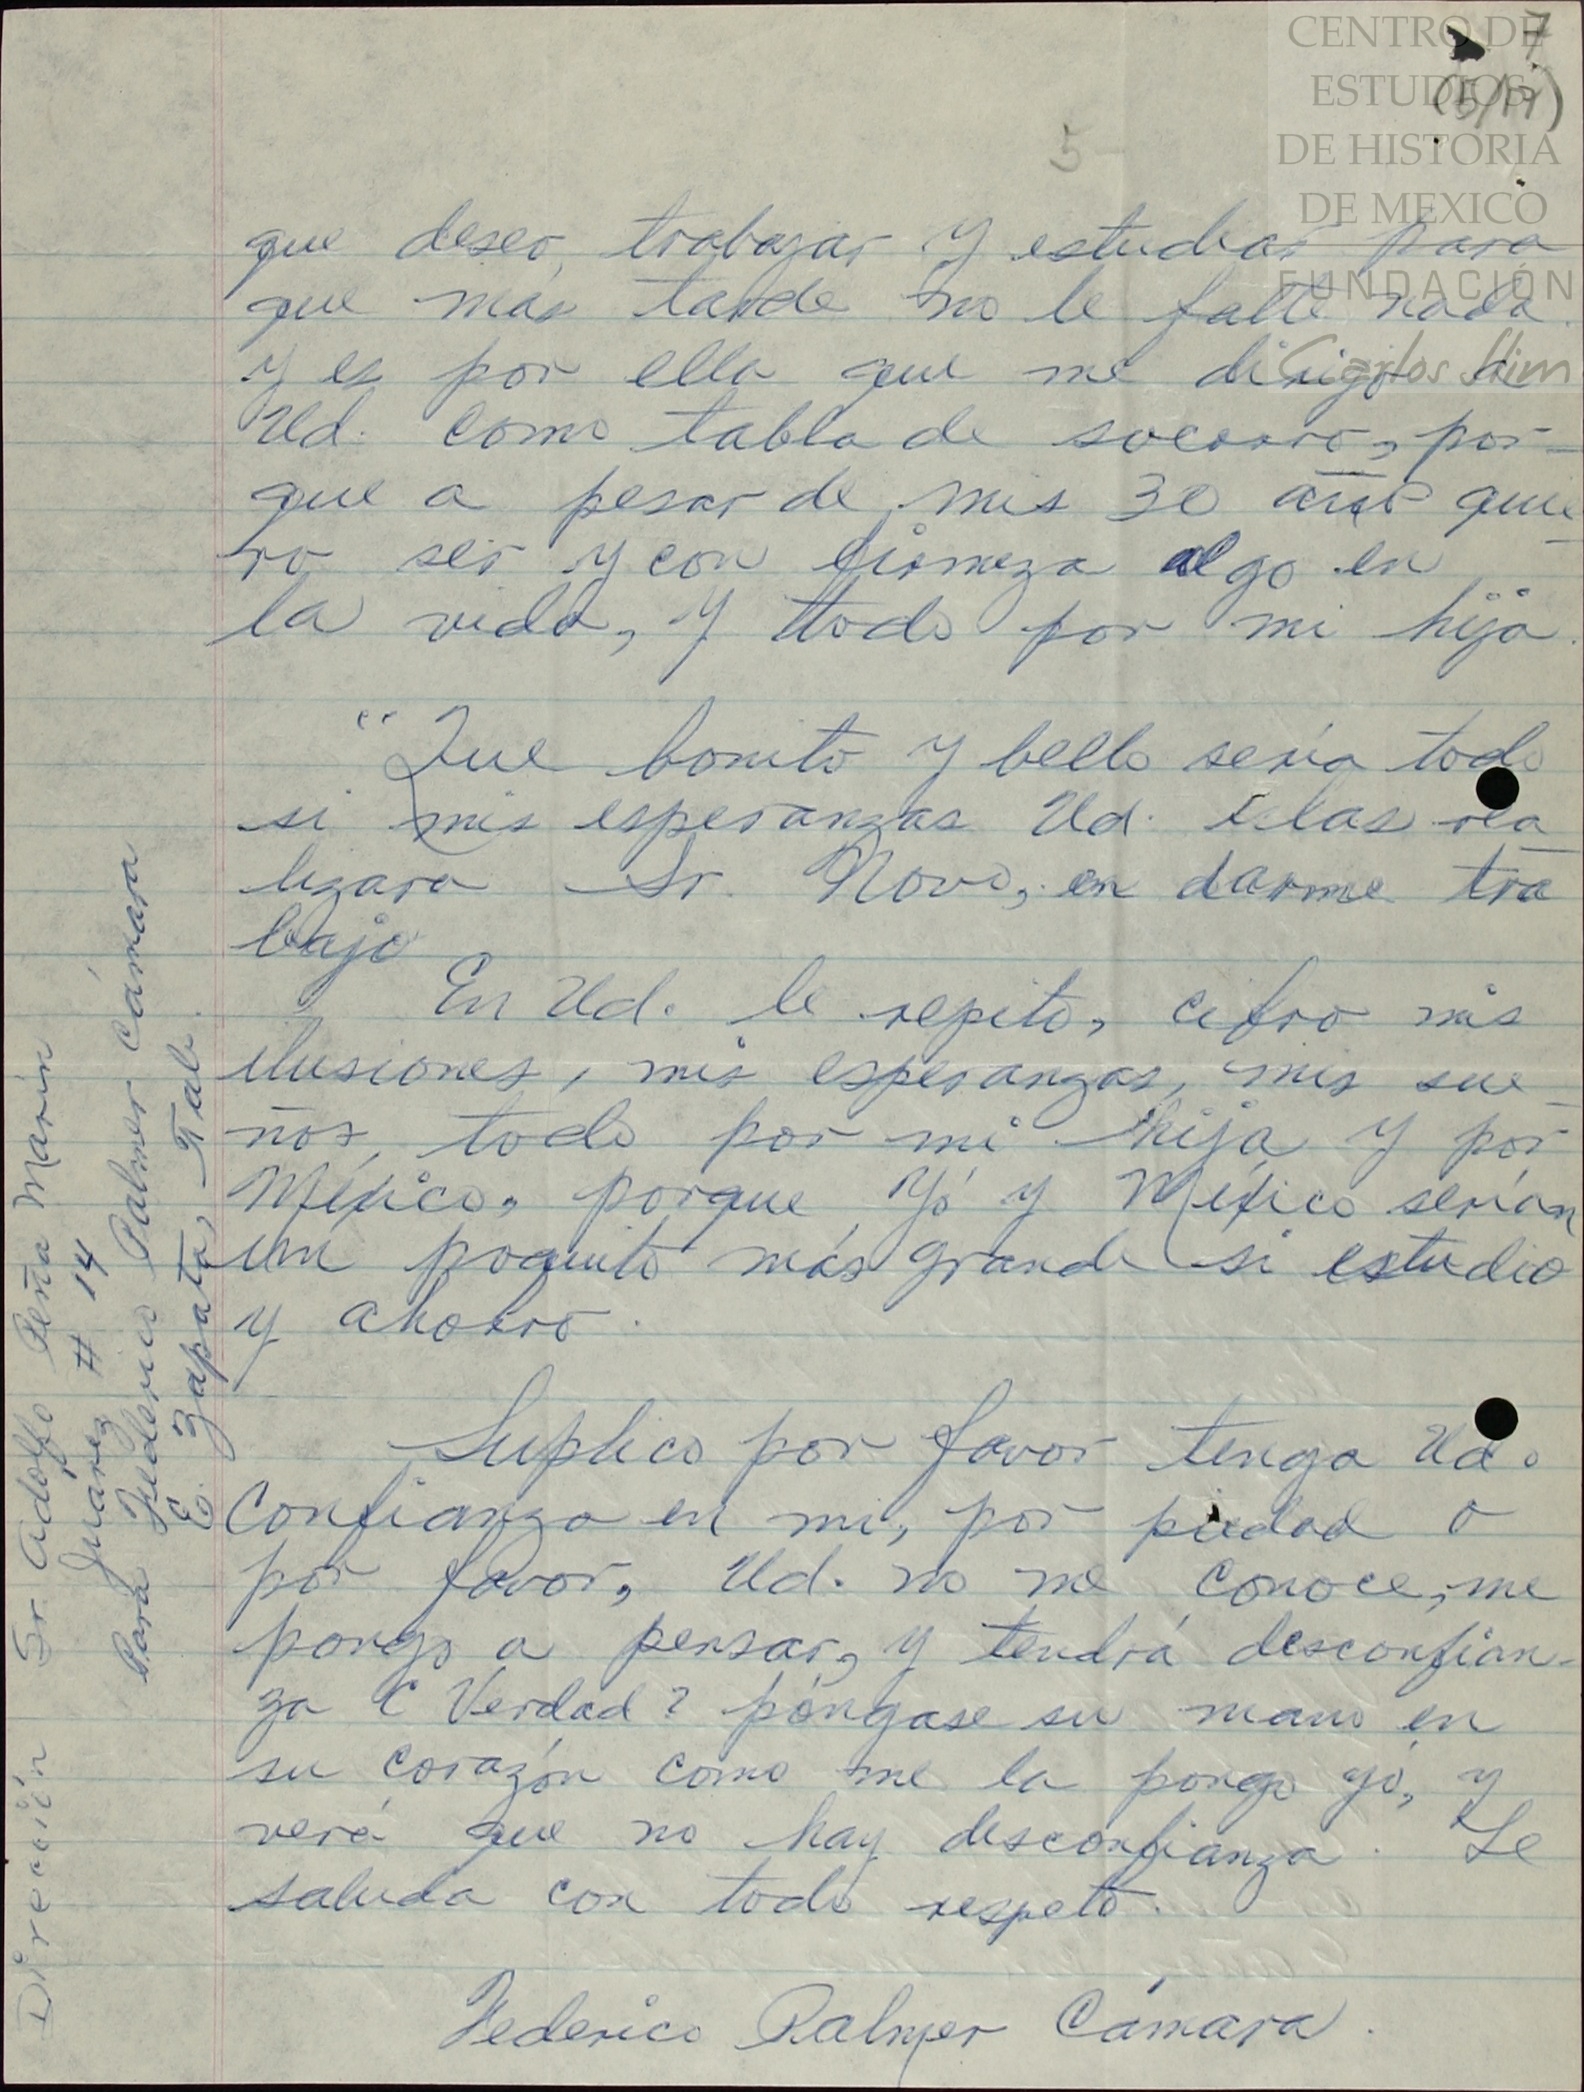 7
(5/11)
5-
CENTRO DE
ESTUDIOS
DE HISTORIA
DE MEXICO
FUNDACIÓN
Carlos Slim
que deseo, trabajar y estudiar para
que más tarde no le falte nada
y es por ella que me dirigo a
Ud. como tabla de socorro, por-
que a pesar de mis 30 años quie-
ro ser y con firmeza algo en
la vida, y todo por mi hija.
"Que bonito y bello sería todo
si mis esperanzas Ud. las rea-
lizara Sr. Novo, en darme tra
bajo
En Ud. le repito, cifro mis
ilusiones, mis esperanzas, mis sue-
ños, todo por mi hija y por
México, porque Yó y México serían
un poquito más grande si estudio
y ahorro.
Suplico por favor tenga Ud.
confianza en mi, por piedad o
por favor, Ud. no me conoce, me
pongo a pensar, y tendrá desconfian-
za ¿Verdad? póngase su mano en
su corazón como me la pongo yó, y
verá que no hay desconfianza. Le
saluda con todo respeto.
Federico Palmer Cámara.
Dirección Sr. Adolfo Peña Marín
Juárez # 14
Para Federico Palmer Cámara
E. Zapata, Tab.